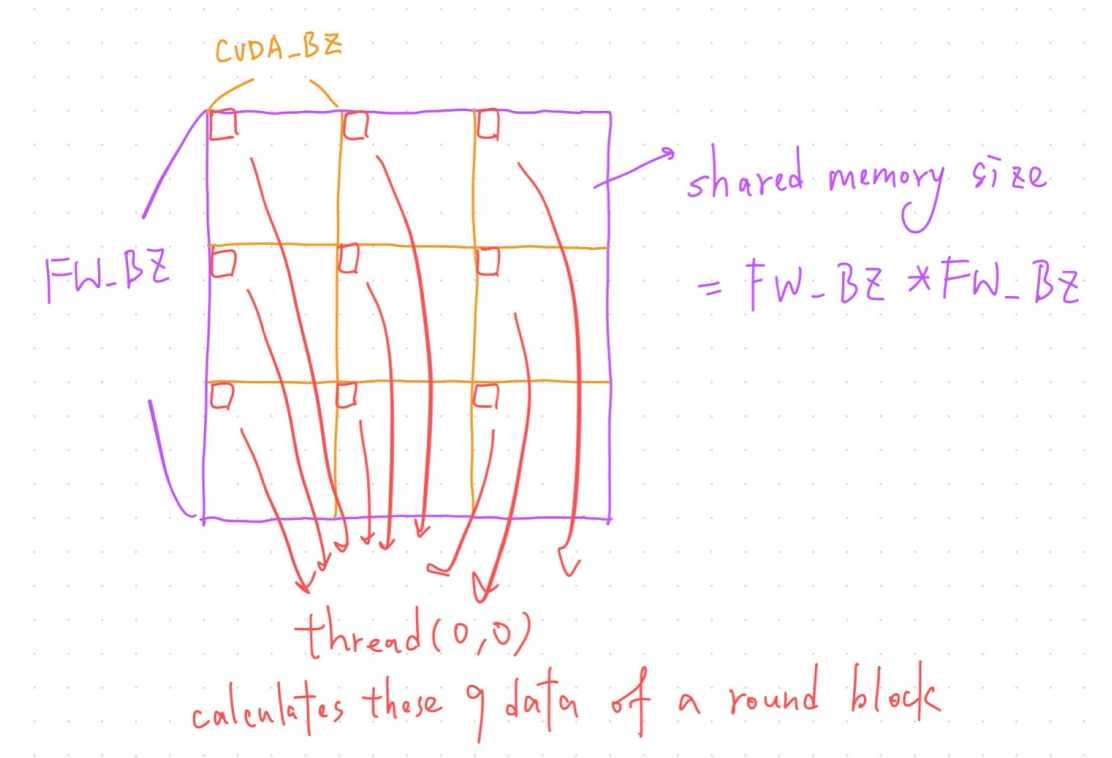 CUDA_BZ
shared memory size
FW_BZ
= FW_BZ * FW_BZ
thread(0,0)
calculates these 9 data of a round block